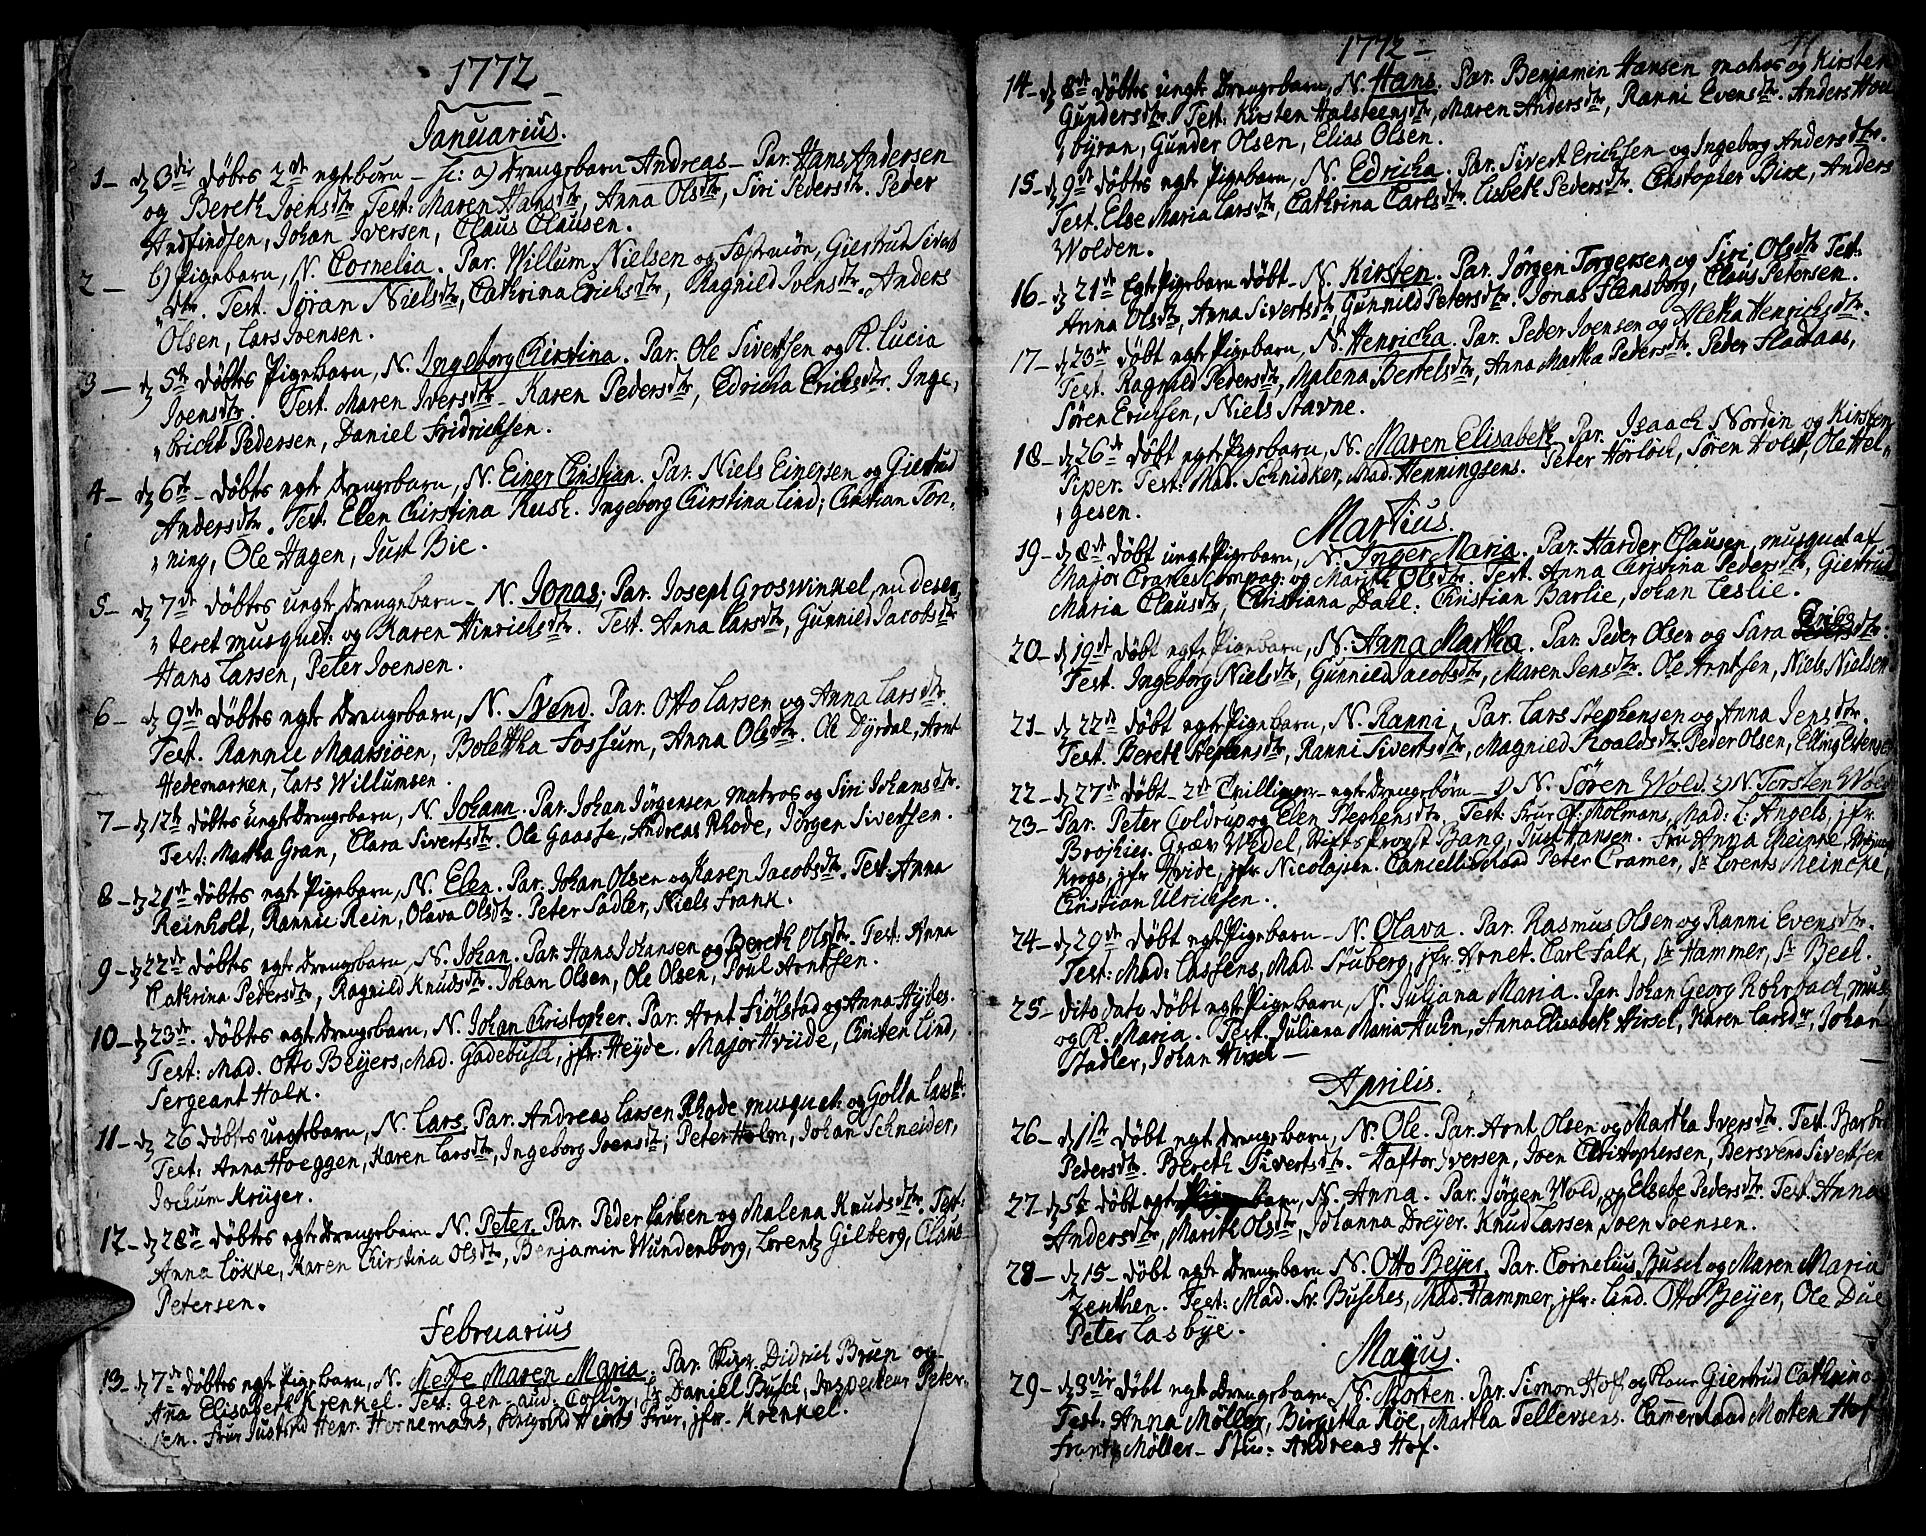 1772
Januarius.
1 - d 3die døbtes 2de egte børn - sc: a) Drengebarn Andreas - Par. Hans Andersen
og Bereth Joensdtr Test: Maren Hansdtr, Anna Olsdtr, Siri Pedersdtr. Peder
Andfindsen, Johan Iversen, Claus Clausen.
2 - b) Pigebarn, N. Cornelia. Par. Willum Nielsen og Fæstemöe, Giertrud Siverts
"dtr. Test. Jöran Nielsdtr, Cathrina Erichsdtr, Ragnild Joensdtr. Anders
Olsen, Lars Joensen.
3 - d 5te døbtes Pigebarn, N. Ingeborg Chirstina. Par. Ole Sivertsen og K. Lucia
Joensdtr. Test. Maren Iversdtr - Karen Pedersdtr, Edricka Erichsdtr. Inge,
"bricht Pedersen, Daniel Fridrichsen.
4 - d 6te - døbtes egte Drengebarn, N. Einer Christian. Par. Niels Einersen og Giertrud
Andersdtr. Test. Elen Chirstina Rusk. Ingeborg Chirstina Lind; Christian Ton,
"ning, Ole Hagen, Just Bie.
5 - d 7de døbtes uegte Drengebarn - N. Jonas; Par. Joseph Groswinkel, nu deser,
"teret musquet: og Karen Hinrichsdtr. Test. Anna Larsdtr, Gunnild Jacobsdtr
Hans Larsen, Peter Joensen.
6 - d 9de døbtes egte Drengebarn, N. Svend. Par. Otto Larsen og Anna Larsdtr
Test. Rannie Maatsiöen, Boletha Fossum, Anna Olsdtr. Ole Dyrdal, Arnt
Hedemarken, Lars Willumsen.
7 - d 12te døbtes uegte Drengebarn, N. Johann. Par. Johan Jörgensen Matros og Siri Johansdtr.
Test: Martha Gran, Clara Sivertsdtr. Ole Gaasse, Andreas Rhode, Jörgen Sivertsen.
8 - d 21de døbtes egte Pigebarn, N. Elen. Par. Johan Olsen og Karen Jacobsdtr. Test: Anna
Reinholt, Rannie Rein, Olava Olsdtr. Peter Sadler, Niels Frank.
9 - d 22de døbtes egte Drengebarn, N. Johan. Par. Hans Johansen og Bereth Olsdtr. Test. Anna
Cathrina Pedersdtr, Ragnild Knudsdtr. Johan Olsen, Ole Olsen, Poul Arntsen.
10 - d 23de. døbtes egte Drengebarn, N. Johan Christopher. Par. Arnt Fiölstad og Anna Hybes.
Test: Mad. Otto Beyers, Mad. Gadebusch, jfr: Heyde. Major Hviide, Christen Lind,
Sergeant Holk.
11 - d 26 døbtes uegte barn, N. Lars. Par. Andreas Larsen Rhode musquet: og Golla Larsd:
Test: Anna Hoeggen, Karen Larsdtr, Ingeborg Joensdtr; Peter Holm, Johan Schneider,
Jochum Krüger.
12 - d 28de døbtes egte Drengebarn N. Peter. Par. Peder Larsen og Malena Knudsdtr. Test.
Anna Lökke, Karen Chirstina Olsdtr, Benjamin Wundenborg, Lorentz Gilberg, Claus
Petersen.
Februarius
13 - d 7de døbtes egte Pigebarn, N. Mette Maren Maria. Par. Skipr. Didrich Brun og
Anna Elisabeth Krenkel. Test: Gen. aud: Collin, Sr Daniel Busch, Inspecteur Peter-
sen. Frue Justsrd Henr: Hornemans, Hiorts Frue, jfr. Krenkel.
1772 -
14 - d 8de døbtes uegte Drengebarn, N. Hans. Par. Benjamin Hansen matros og Kirsten
Gundersdtr. Test: Kirsten Halsteensdtr, Maren Andersdtr, Ranni Evensdtr. Anders Hou
"byran, Gunder Olsen, Elias Olsen.
15 - d 9de døbtes egte Pigebarn, N. Edricka. Par. Sivert Erichsen og Ingeborg Andersdtr.
Test. Else Maria Larsdtr, Cathrina Carlsdtr. Lisbeth Pedersdtr. Christopher Birk, Anders
Wolden.
16 - d 21de Egte Pigebarn døbt - N. Kirsten. Par. Jörgen Torgersen og Siri Olsdtr Test:
Anna Olsdtr, Anna Sivertsdtr, Gunnild Petersdtr. Jonas Flensborg, Claus Petersen.
17 - d 23de døbt egte Pigebarn, N. Henricka. Par. Peder Joensen og Aletha Henrichsdtr.
Test. Ragnild Pedersdtr, Malena Bertelsdtr, Anna Martha Pedersdtr. Peder Fladaas,
Sören Erichsen, Niels Stavne.
18 - d 26de døbt egte Pigebarn, N. Maren Elisabeth Par. Isaach Nordin og Kirsten
Piper. Test: Mad. Schnidker, Mad. Henningsens. Peter Hörlöch, Sören Holst, Ole Hel,
"gesen.
Martius.
19 - d 8de døbt uegte Pigebarn, N. Inger Maria. Par. Harder Clausen, musquet af
Major Cranes Compag: og Marith Olsdtr. Test. Anna Christina Pedersdtr, Giertrud
Maria Clausdtr, Christiana Dahl. Christian Barlie, Johan Leslie.
20 - d 19de døbt egte Pigebarn, N. Anna Martha. Par. Peder Olsen og Sara dtr.
Test. Ingeborg Nielsdtr, Gunnild Jacobsdtr, Maren Jensdtr. Ole Arntsen, Niels Nielsen.
21 - d 22de døbt egte Pigebarn, N. Ranni. Par. Lars Stephensen og Anna Jensdtr.
Test. Bereth Stephensdtr, Ranni Sivertsdtr, Magnild Roaldsdtr. Peder Olsen, Elling Estensen
22 - d 27de døbt - 2de Tvillinger - egte Drengebörn - 1) N. Sören Wold. 2) N. Torsten Wold
23 - Par. Peter Coldrup og Elen Stephensdtr. Test: Frue G: Molmans, Mad: L: Angels, jfr:
Broskies. Græv Wedel, Stiftsprovst Bang, Just Hansen. Fru Anna Meinke,
Krogs, jfr Hvide, jfr. Nicolajsen. Cancelliraad Peter Cramer, Sr Lorents Meincke,
Christian Ulrichsen.
24 - d 29de døbt egte Pigebarn - N. Olava. Par. Rasmus Olsen og Ranni Evensdtr.
Test: Mad: Lassens, Mad. Stuberg, jfr: Arnet. Carl Falk, Sr Hammer, Sr Bech.
25 - dito dato døbt egte Pigebarn, N. Juliana Maria. Par. Johan Georg Rohrbach, mus,
og K. Maria. Test. Juliana Maria Huhn, Anna Elisabeth Hirsch, Karen Larsdtr, Johan
Stadler, Johan Hirsch -
Aprilis.
26 - d 1ste døbt egte Drengebarn, N. Ole. Par. Arnt Olsen og Martha Iversdtr. Test. Barbra
Pedersdtr. Bereth Sivertsdtr. Haftor Iversen, Joen Christophersen, Bersvend Sivertsen
27 - d 5te døbt egte Pigebarn, N. Anna. Par. Jörgen Wold, og Elsebe Pedersdtr. Test. Anna
Andersdtr, Marith Olsdtr, Johanna Dreyer. Knud Larsen, Joen Joensen.
28 - d 15 - døbt egte Drengebarn N. Otto Beyer. Par. Cornelius Busch og Maren Maria
Zeuthen. Test: Mad. Sr. Busches, Mad. Hammer, jfr: Lind. Otto Beyer, Ole Due
Peter Lasbye.
Majus.
29 - d 3die døbt egte Drengebarn, N. Morten. Par. Simon Hof og Giertrud Cathrina
Test. Anna Möller, Birgitha Köe, Martha Tellersens. Cammerraad Morten Hof
Frantz Möller - Stud: Andreas Hof.